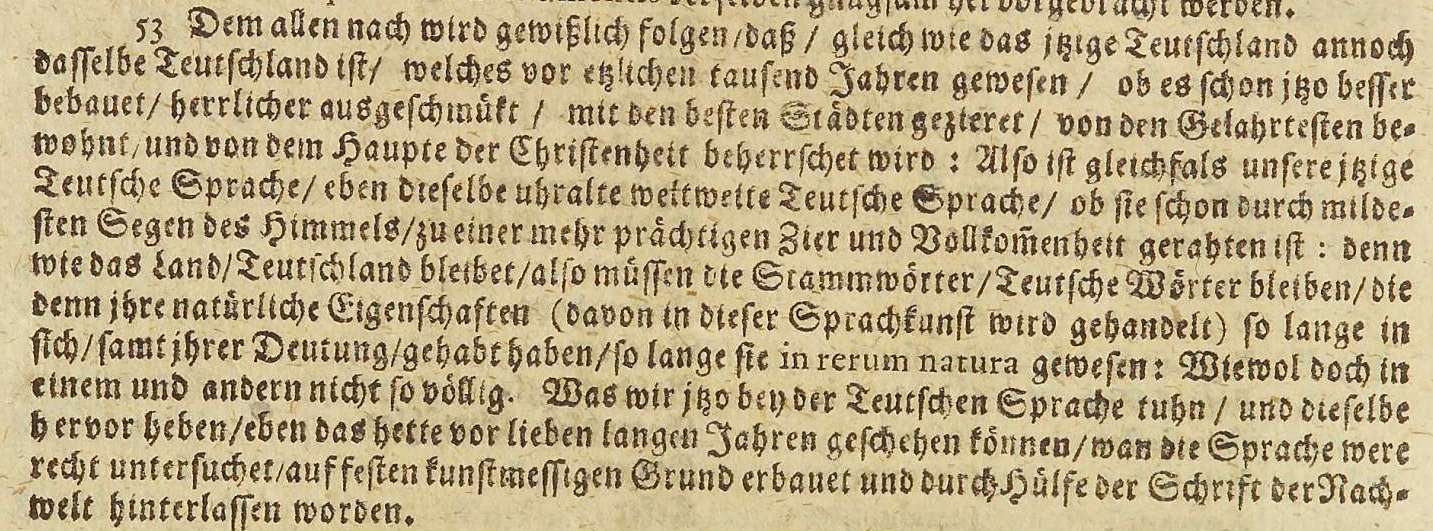 gnugsam hervorgebracht werden.
53 Dem allen nach wird gewißlich folgen/daß/ gleich wie das jtzige Teutschland annoch
dasselbe Teutschland ist/ welches vor etzlichen tausend Jahren gewesen/ ob es schon jtzo besser
bebauet/ herrlicher ausgeschmükt/ mit den besten Städten gezieret/ von den Gelahrtesten be-
wohnt/und von dem Haupte der Christenheit beherrschet wird: Also ist gleichfals unsere jtzige
Teutsche Sprache/ eben dieselbe uhralte weltweite Teutsche Sprache/ ob sie schon durch milde-
sten Segen des Himmels/zu einer mehr prächtigen Zier und Vollkom̃enheit gerahten ist: denn
wie das Land/Teutschland bleibet/also müssen die Stammwörter/Teutsche Wörter bleiben/die
denn jhre natürliche Eigenschaften (davon in dieser Sprachkunst wird gehandelt) so lange in
sich/samt jhrer Deutung/gehabt haben/so lange sie in rerum natura gewesen: Wiewol doch in
einem und andern nicht so völlig. Was wir jtzo bey der Teutschen Sprache tuhn/ und dieselbe
hervor heben/eben das hette vor lieben langen Jahren geschehen können/wan die Sprache were
recht untersuchet/auf festen kunstmessigen Grund erbauet und durch Hülfe der Schrift der Nach-
welt hinterlassen worden.